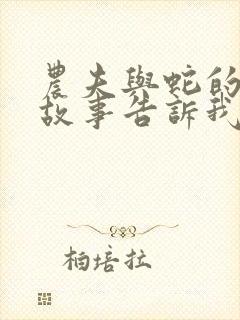 農夫與蛇的
故事告訴我
柏培拉